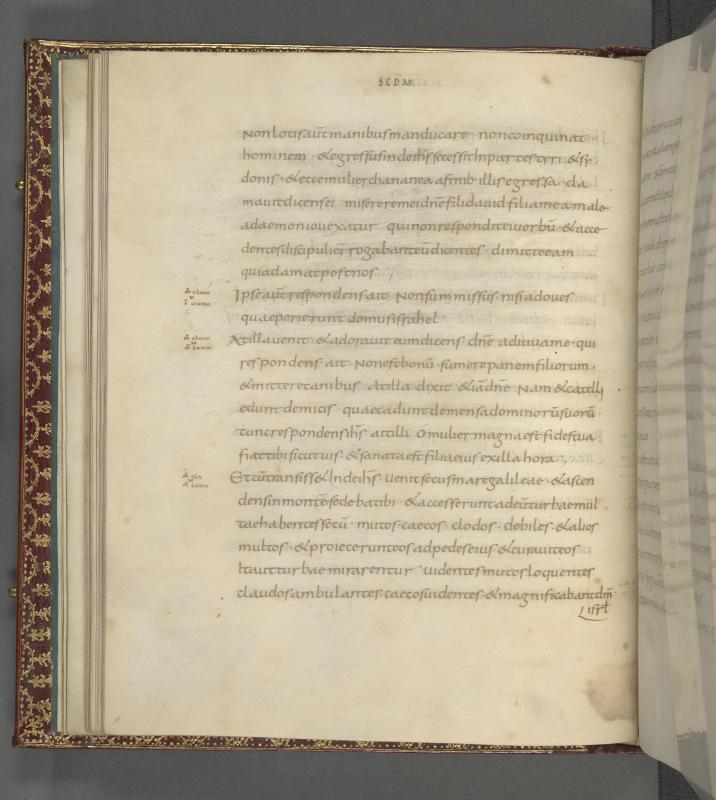 SCDM
Non lotis aut̄ manibus manducare · non coinquinat
hominem · & egressus inde ih̄s secessit In partes tyri · & si
donis · & ecce mulier chananea a finib· illis egressa · cla
mauit dicens ei · miserere mei dn̄e fili dauid filia mea male
a daemonio uexatur · qui non respondit ei uerbū · & acce
dentes discipuli eius rogabant eū dicentes · dimitte eam
quia clamat post nos ·,
Ipse aut̄ respondens ait · Non sum missus · nisi ad oues
quae perierunt domus israhel ·
At illa uenit · & adorauit eum dicens · dn̄e adiuua me · qui
respondens ait · Non est bonū · sumere panem filiorum ·
& mittere canibus · at illa dixit · &iā dn̄e · Nam & catelli
edunt de micis · quae cadunt de mensa dominorū suorū ·
tunc respondens ih̄s ait illi · O mulier magna est fides tua ·
fiat tibi sicut uis · & sanata est filia eius ex illa hora ·,
Et cū transiss& Inde ih̄s · uenit secus mare galileae · & ascen
dens in montē sedebat ibi · & accesserunt ad eū turbae mul
tae habentes secū · mutos · caecos · clodos · debiles · & alios
multos · & proiecerunt eos ad pedes eius · & curauit eos
Ita ut turbae mirarentur · uidentes mutos loquentes
claudos ambulantes · caecos uidentes · & magnificabant dm̄
isrl̄